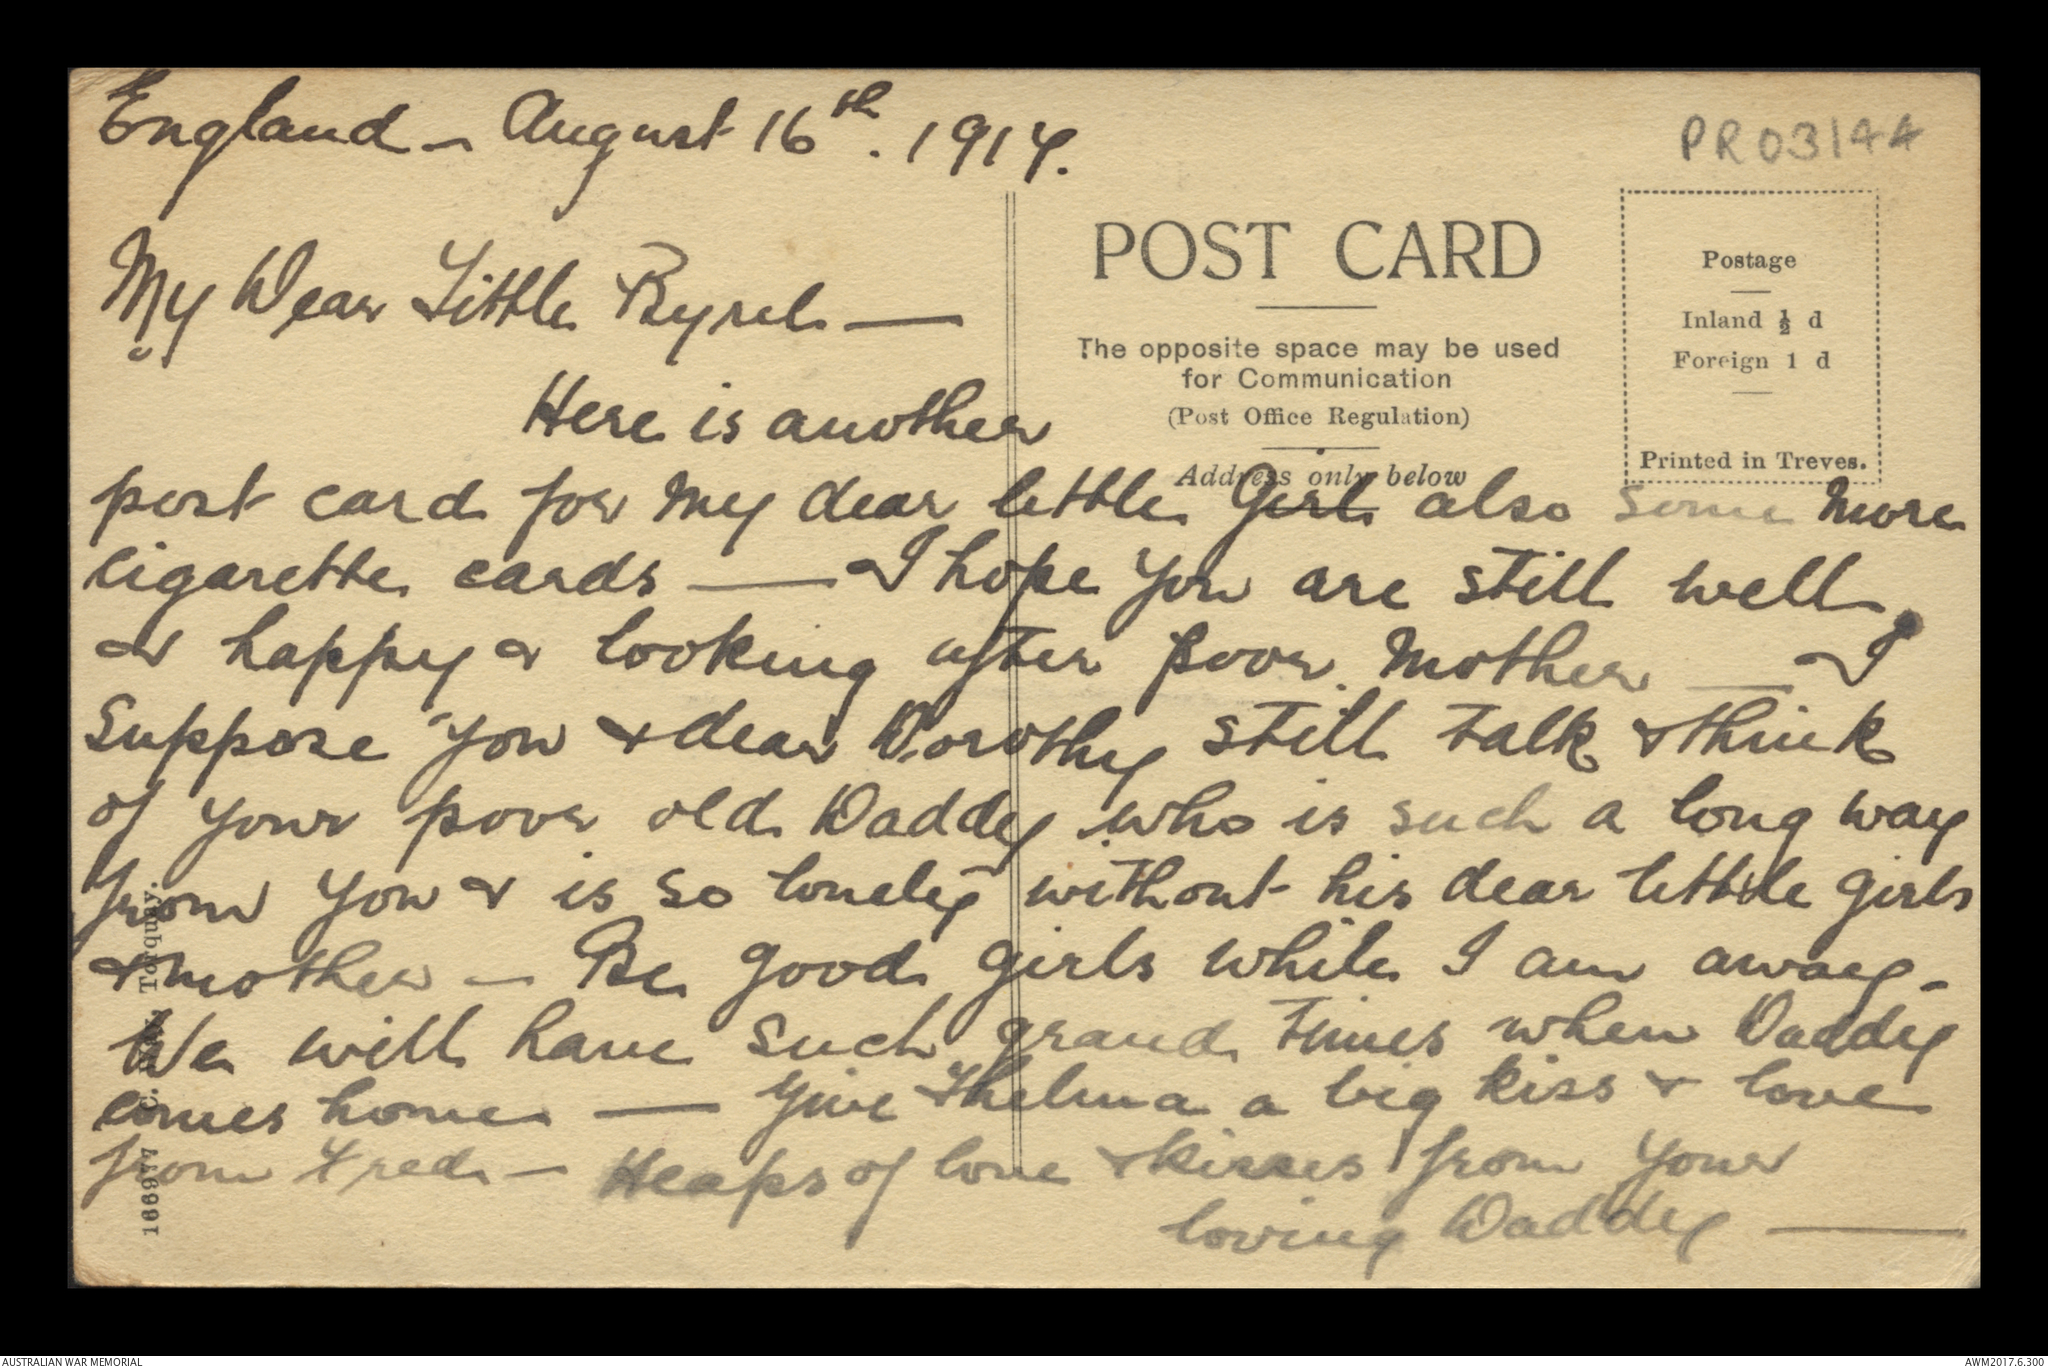 England - August 16th. 1917.
PR03144
My Dear Little Byrel —
POST CARD
Postage
Inland ½ d
Foreign 1 d
Printed in Treves.
The opposite space may be used
for Communication
(Post Office Regulation)
Address only below
Here is another
post card for My dear little Girl also some More
cigarette cards — I hope you are still well,
& happy & looking after poor Mother — I
suppose you & dear Dorothy still talk & think
of your poor old Daddy who is such a long way
from you & is so lonely without his dear little girls
& mother — Be good girls while I am away -
We will have such grand times when Daddy
comes home — Give Thelma a big kiss & love
from Fred — Heaps of love & kisses from your
loving Daddy —
Torquay.
AUSTRALIAN WAR MEMORIAL
AWM2017.6.300